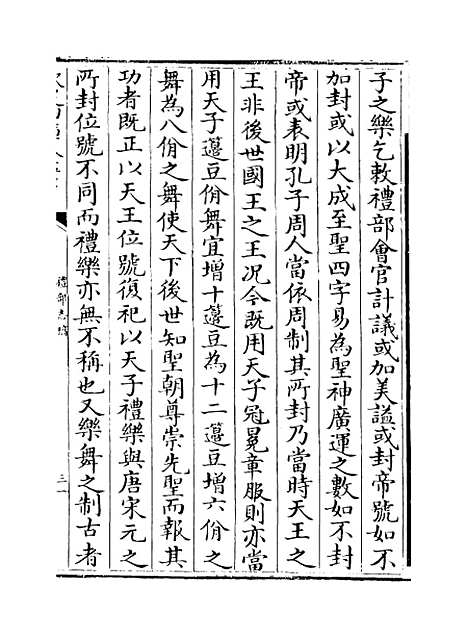 子之樂乞敕禮部會官計議或加美謚或封帝號如不
加封或以大成至聖四字易為聖神廣運之數如不封
帝或表明孔子周人當依周制其所封乃當時天王之
王非後世國王之王况今既用天子冠冕章服則亦當
用天子籩豆佾舞宜增十籩豆為十二籩豆增六佾之
舞為八佾之舞使天下後世知聖朝尊崇先聖而報其
功者既正以天王位號復祀以天子禮樂與唐宋元之
所封位號不同而禮樂亦無不稱也又樂舞之制古者
禮部志稿